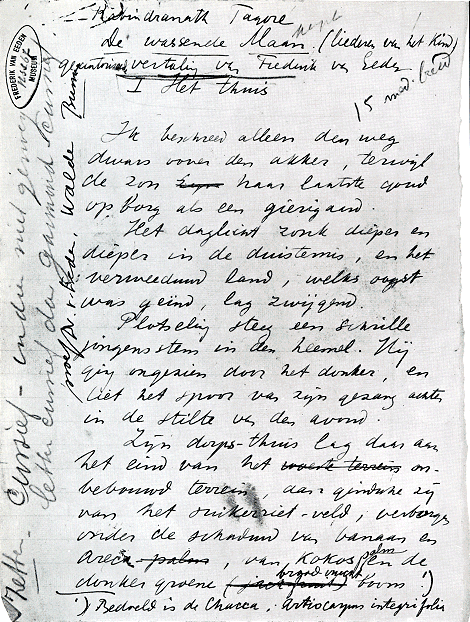 Rabindranath Tagore
De wassende Maan. (liederen van het Kind)
vertaling van Frederik van Eeden
I Het thuis
15 m.d. breed
FREDERIK VAN EEDEN
MUSEUM
Ik beschreed alleen den weg
dwars over den akker, terwijl
de zon zijn haar laatste goud
opborg als een gierigaard.
Het daglicht zonk dieper en
dieper in de duisternis, en het
verweduwd land, welks oogst
was geïnd, lag zwijgend.
Plotseling steeg een schrille
jongensstem in den heemel. Hij
ging ongezien door het donker, en
liet het spoor van zijn gezang achter
in de stilte van den avond.
Zijn dorps-thuis lag daar aan
het eind van het woeste terrein on-
bebouwd terrein, daar ginds
van het suikerriet-veld, verborgen
onder de schaduw van banaan en
areca palm, van kokospalm en de
donker groene (jack fruit) broodvrucht boom ')
') Bedoeld is de Chacca, Artocarpus integrifolia
Cursief - indien niet genoeg
letter cursief dan garmond cursief
Walden Bussum